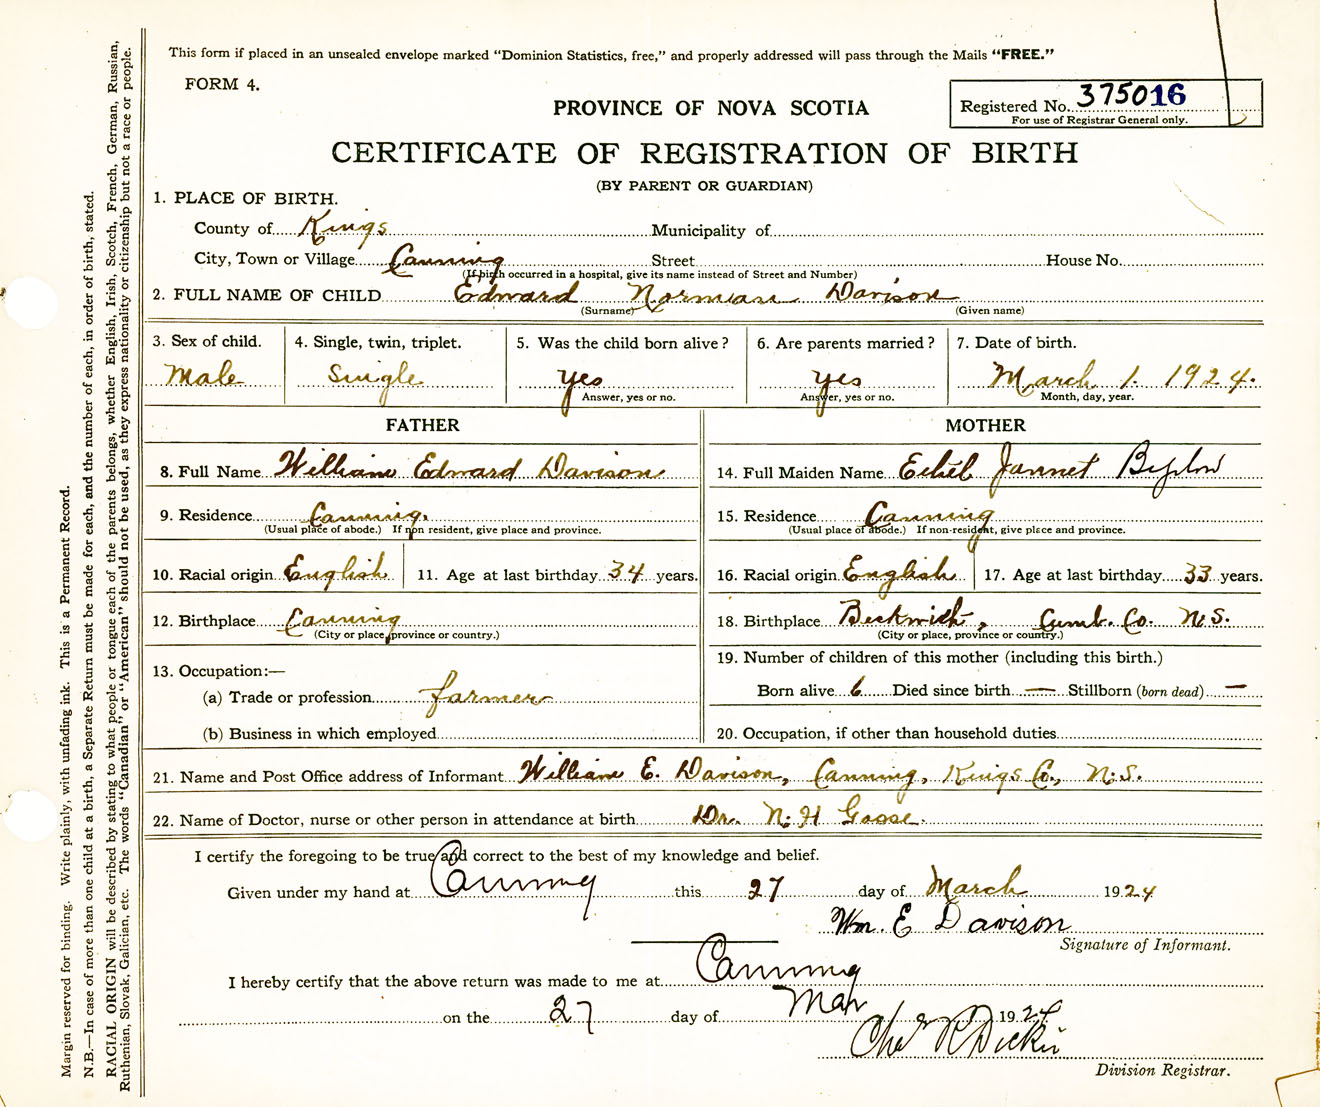 This form if placed in an unsealed envelope marked "Dominion Statistics, free," and properly addressed will pass through the Mails "FREE."
FORM 4.
Registered No. 375016
For use of Registrar General only.
PROVINCE OF NOVA SCOTIA
CERTIFICATE OF REGISTRATION OF BIRTH
(BY PARENT OR GUARDIAN)
1. PLACE OF BIRTH.
County of Kings Municipality of
City, Town or Village Canning Street House No.
(If birth occurred in a hospital, give its name instead of Street and Number)
2. FULL NAME OF CHILD Edward Norman Davison
(Surname) (Given name)
3. Sex of child. 4. Single, twin, triplet. 5. Was the child born alive? 6. Are parents married? 7. Date of birth.
Male Single yes yes March 1. 1924.
Answer, yes or no. Answer, yes or no. Month, day, year.
FATHER MOTHER
8. Full Name William Edward Davison 14. Full Maiden Name Ethel Jannet
9. Residence Canning. 15. Residence Canning
(Usual place of abode.) If non resident, give place and province. (Usual place of abode.) If non-resident, give place and province.
10. Racial origin English 11. Age at last birthday 34 years. 16. Racial origin English 17. Age at last birthday 33 years.
12. Birthplace Canning 18. Birthplace Beckwith, Cumb. Co. N.S.
(City or place, province or country.) (City or place, province or country.)
13. Occupation:— 19. Number of children of this mother (including this birth.)
(a) Trade or profession farmer Born alive 6 Died since birth — Stillborn (born dead) —
(b) Business in which employed 20. Occupation, if other than household duties
21. Name and Post Office address of Informant William E. Davison, Canning, Kings Co., N.S.
22. Name of Doctor, nurse or other person in attendance at birth Dr. N. H Gosse.
I certify the foregoing to be true and correct to the best of my knowledge and belief.
Given under my hand at Canning this 27 day of March 1924
Wm. E Davison
Signature of Informant.
I hereby certify that the above return was made to me at Canning
on the 27 day of Mar 1924
Chas R Dickie
Division Registrar.
Margin reserved for binding. Write plainly, with unfading ink. This is a Permanent Record.
N.B.—In case of more than one child at a birth, a Separate Return must be made for each, and the number of each, in order of birth, stated.
RACIAL ORIGIN will be described by stating to what people or tongue each of the parents belongs, whether English, Irish, Scotch, French, German, Russian,
Ruthenian, Slovak, Galician, etc. The words "Canadian" or "American" should not be used, as they express nationality or citizenship but not a race or people.